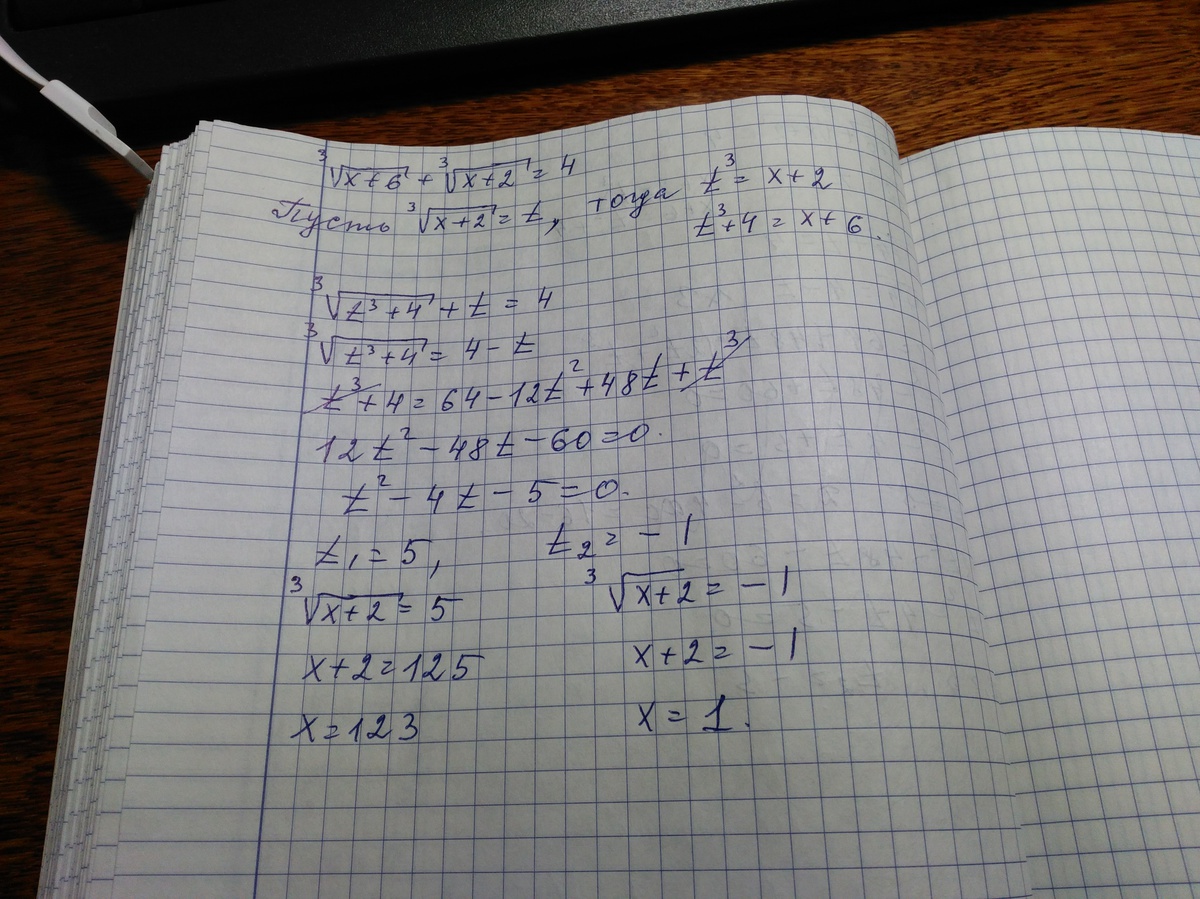 ∛(x+6) + ∛(x+2) = 4
Пусть ∛(x+2) = t, тогда t³ = x+2
t³+4 = x+6.
∛(t³+4) + t = 4
∛(t³+4) = 4 - t
t³ + 4 = 64 - 12t² + 48t + t³
12t² - 48t - 60 = 0.
t² - 4t - 5 = 0.
t₁ = 5, t₂ = -1
∛(x+2) = 5 ∛(x+2) = -1
x+2 = 125 x+2 = -1
x = 123 x = 1.